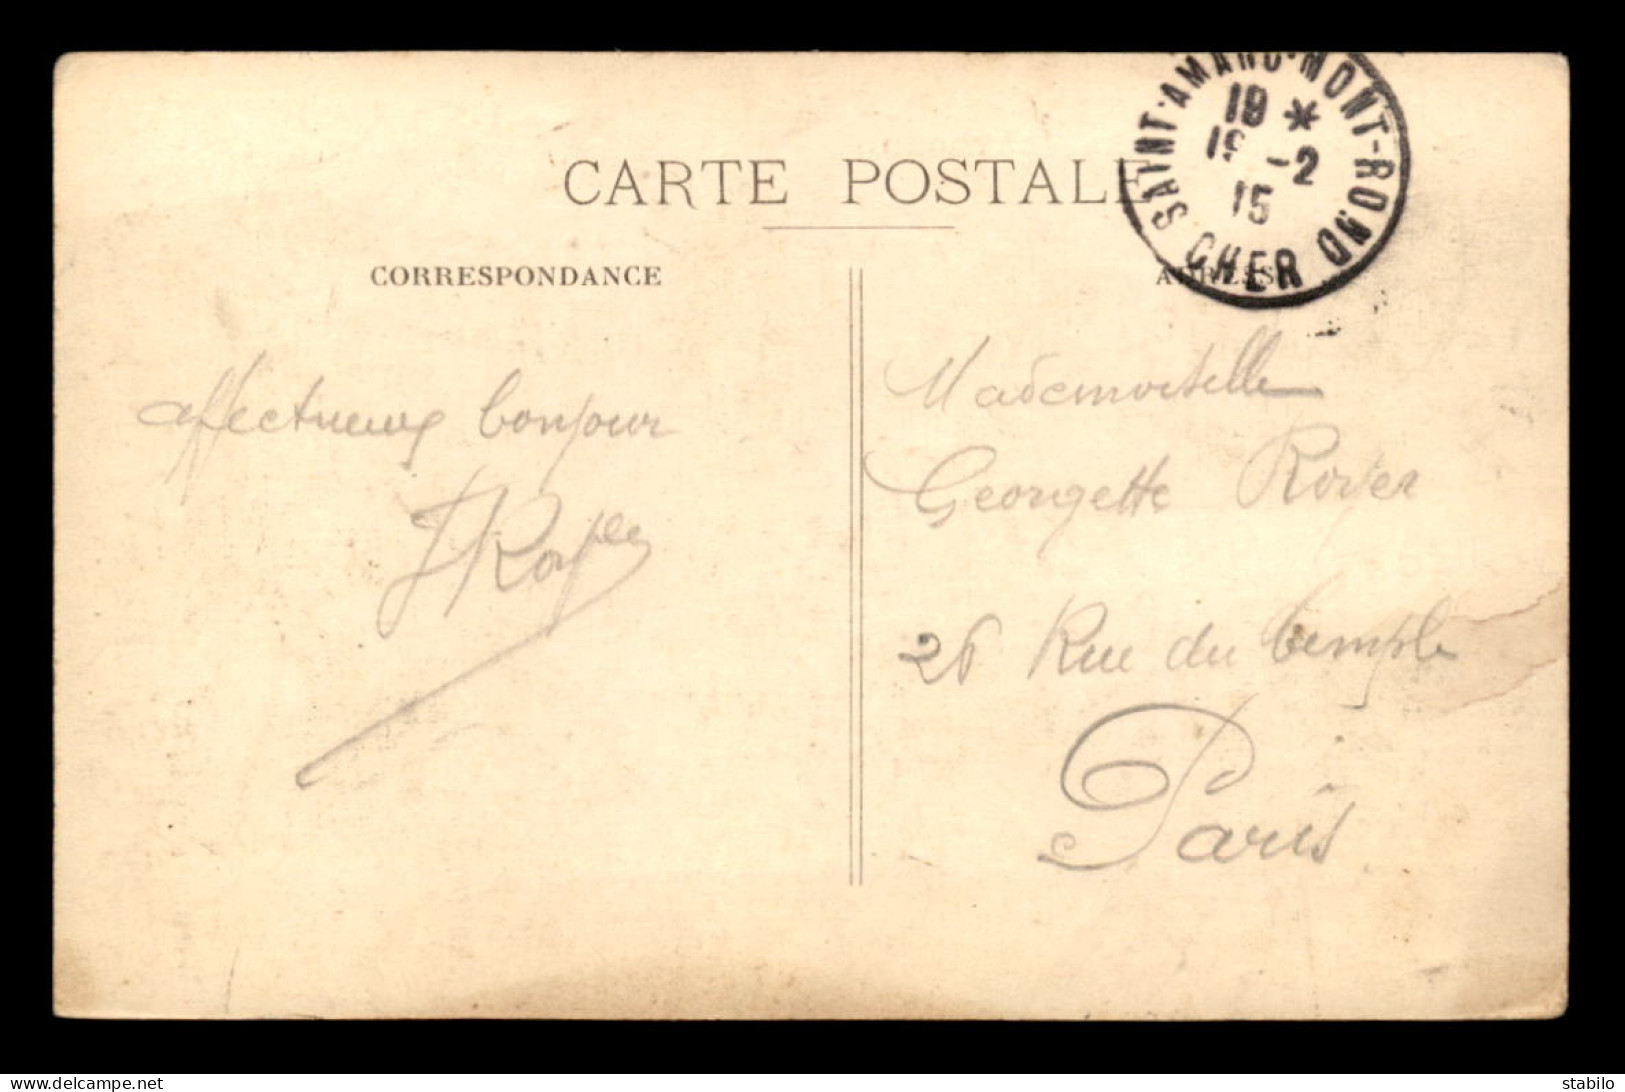 CARTE POSTALE
SAINT-AMAND-MONT-ROND
18 *
-2
15
CHER
CORRESPONDANCE
ADRESSE
affectueux bonjour
Mademoiselle
Georgette
26 Rue du temple
Paris
stabilo
delcampe.net